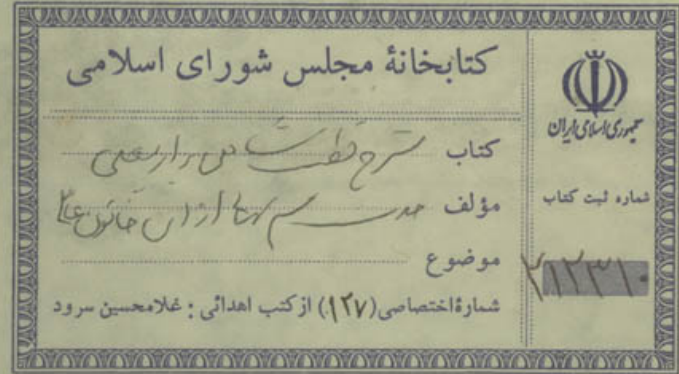 کتابخانهٔ مجلس شورای اسلامی
جمهوری اسلامی ایران
کتاب شرح قطب شاهی بر اربعین
مؤلف
شماره ثبت کتاب
موضوع
شمارهٔ اختصاصی (۱۲۷) از کتب اهدائی : غلامحسین سرود